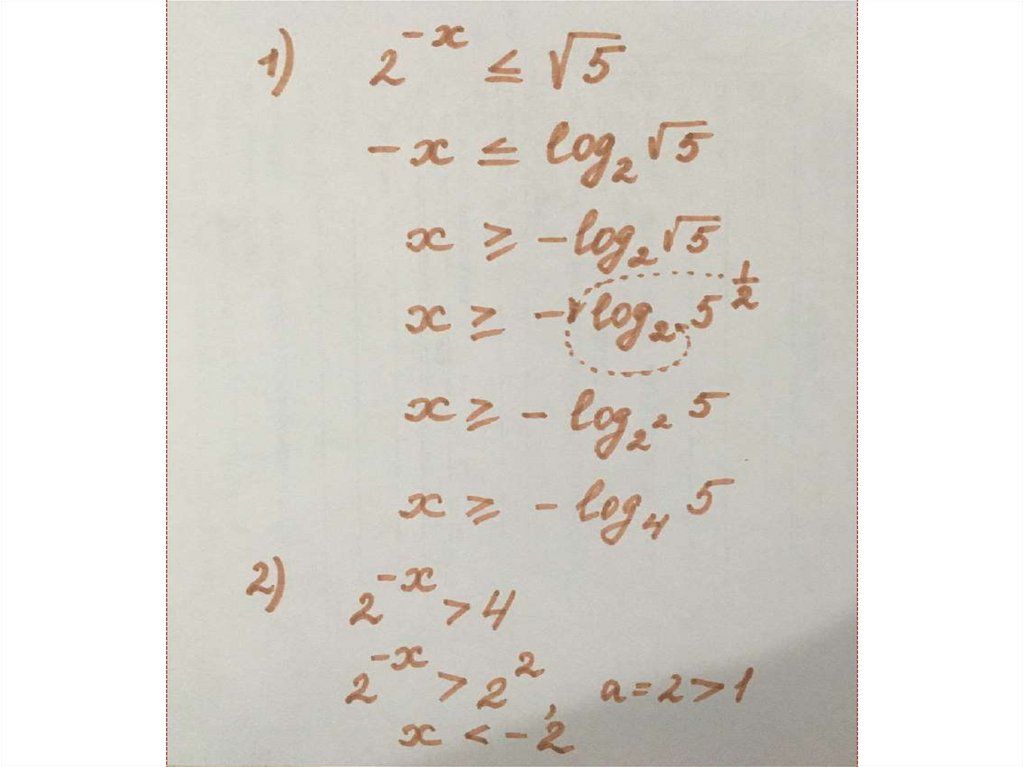 1) 2^{-x} ≤ √5
-x ≤ log₂ √5
x ≥ -log₂ √5
x ≥ - log₂ 5^{1/2}
x ≥ - log_{2²} 5
x ≥ - log₄ 5
2) 2^{-x} > 4
2^{-x} > 2², a = 2 > 1
x < -2